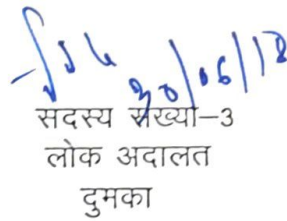 30/06/18
सदस्य संख्या–3
लोक अदालत
दुमका